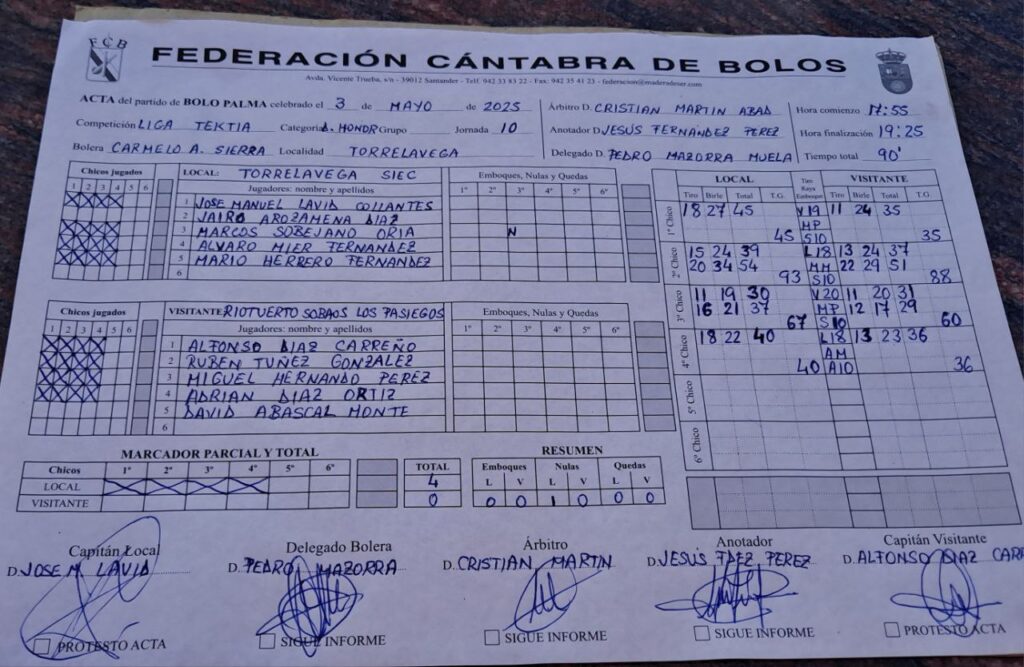 FCB
FEDERACIÓN CÁNTABRA DE BOLOS
Avda. Vicente Trueba, s/n - 39012 Santander - Telf. 942 33 83 22 - Fax: 942 35 41 23 - federacion@maderadeser.com
ACTA del partido de BOLO PALMA celebrado el 3 de MAYO de 2025
Competición LIGA TEKTIA Categoria D. HONOR Grupo Jornada 10
Bolera CARMELO A. SIERRA Localidad TORRELAVEGA
Árbitro D. CRISTIAN MARTIN ABAD
Anotador D. JESÚS FERNANDEZ PEREZ
Delegado D. PEDRO MAZORRA MUELA
Hora comienzo 17:55
Hora finalización 19:25
Tiempo total 90'
Chicos jugados
1 2 3 4 5 6
LOCAL: TORRELAVEGA SIEC
Jugadores: nombre y apellidos
1 JOSE MANUEL LAVID COLLANTES
2 JAIRO AROZAMENA DIAZ
3 MARCOS SOBEJANO ORIA
4 ALVARO MIER FERNANDEZ
5 MARIO HERRERO FERNANDEZ
6
Emboques, Nulas y Quedas
1º 2º 3º 4º 5º 6º
N
Chicos jugados
1 2 3 4 5 6
VISITANTE: RIOTUERTO SOBAOS LOS PASIEGOS
Jugadores: nombre y apellidos
1 ALFONSO DIAZ CARREÑO
2 RUBEN TUÑEZ GONZALEZ
3 MIGUEL HERNANDO PEREZ
4 ADRIAN DIAZ ORTIZ
5 DAVID ABASCAL MONTE
6
Emboques, Nulas y Quedas
1º 2º 3º 4º 5º 6º
LOCAL Tiro Raya Emboque VISITANTE
Tiro Birle Total T.G. Tiro Birle Total T.G.
1º Chico
18 27 45 V19 11 24 35
MP
45 S10 35
2º Chico
15 24 39 L18 13 24 37
20 34 54 MM 22 29 51
93 S10 88
3º Chico
11 19 30 V20 11 20 31
16 21 37 MP 12 17 29
67 S10 60
4º Chico
18 22 40 L18 13 23 36
AM
40 A10 36
5º Chico
6º Chico
MARCADOR PARCIAL Y TOTAL
Chicos 1º 2º 3º 4º 5º 6º TOTAL
LOCAL 4
VISITANTE 0
RESUMEN
Emboques Nulas Quedas
L V L V L V
0 0 1 0 0 0
Capitán Local
D. JOSE M LAVID
PROTESTO ACTA
Delegado Bolera
D. PEDRO MAZORRA
SIGUE INFORME
Árbitro
D. CRISTIAN MARTIN
SIGUE INFORME
Anotador
D. JESÚS FDEZ PEREZ
SIGUE INFORME
Capitán Visitante
D. ALFONSO DIAZ CARR
PROTESTO ACTA